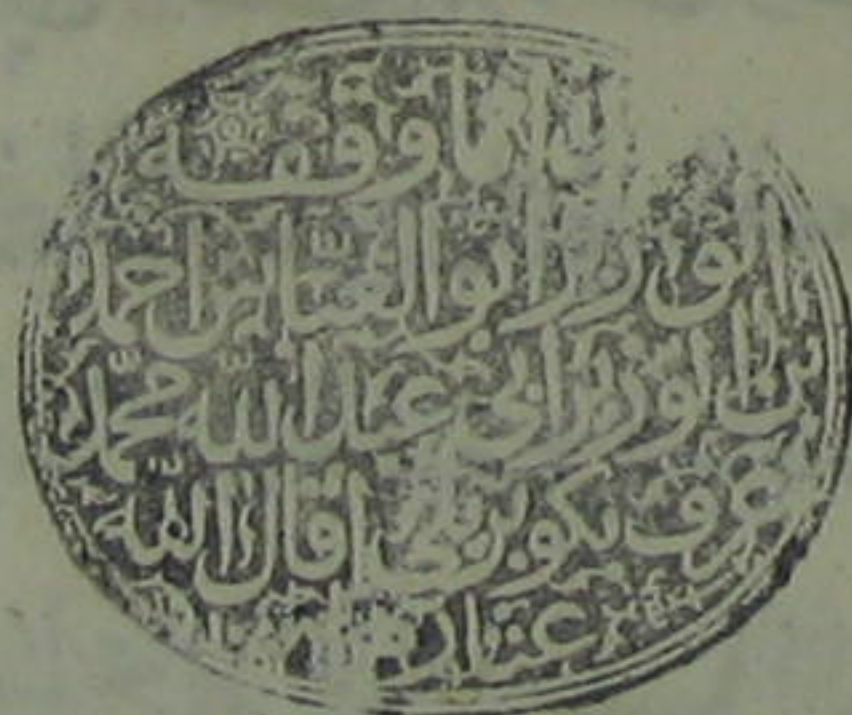 هذا مما وقفه
الوزير أبو العباس احمد
بن الوزير أبي عبد الله محمد
عرف بكوبريلي اقال الله
عثارهما